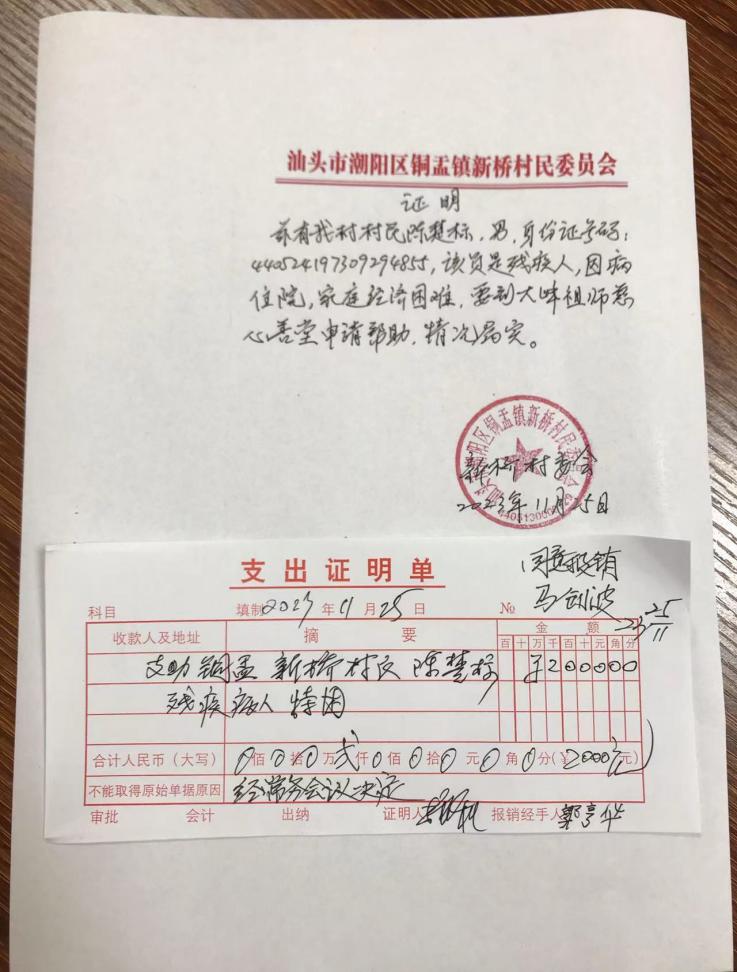 汕头市潮阳区铜盂镇新桥村民委员会
证明
兹有我村村民陈楚标，男，身份证号码：
440524197309294855，该员是残疾人，因病
住院，家庭经济困难，要到大峰祖师慈
心善堂申请帮助，情况属实。
汕头市潮阳区铜盂镇新桥村民委员会
新桥村委会
2023年11月25日
同意报销
支出证明单
科目 填制2023年11月25日 №
25/11
收款人及地址 摘要 金额
百十万千百十元角分
支助铜盂新桥村民陈楚标 ¥200000
残疾病人特困
合计人民币（大写）0佰0拾0万贰仟0佰0拾0元0角0分（¥2000元）
不能取得原始单据原因 经常务会议决定
审批 会计 出纳 证明人 报销经手人 郭亨华